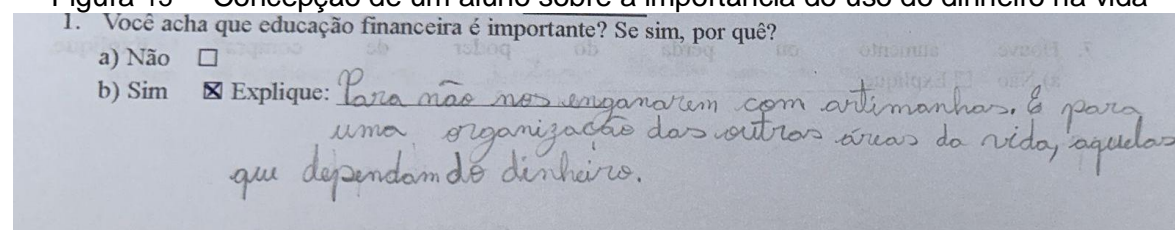 Figura 19 – Concepção de um aluno sobre a importância do uso do dinheiro na vida
1. Você acha que educação financeira é importante? Se sim, por quê?
a) Não ☐
b) Sim ☒ Explique: Para não nos enganarem com artimanhas. E para
uma organização das outras áreas da vida, aquelas
que dependam do dinheiro.